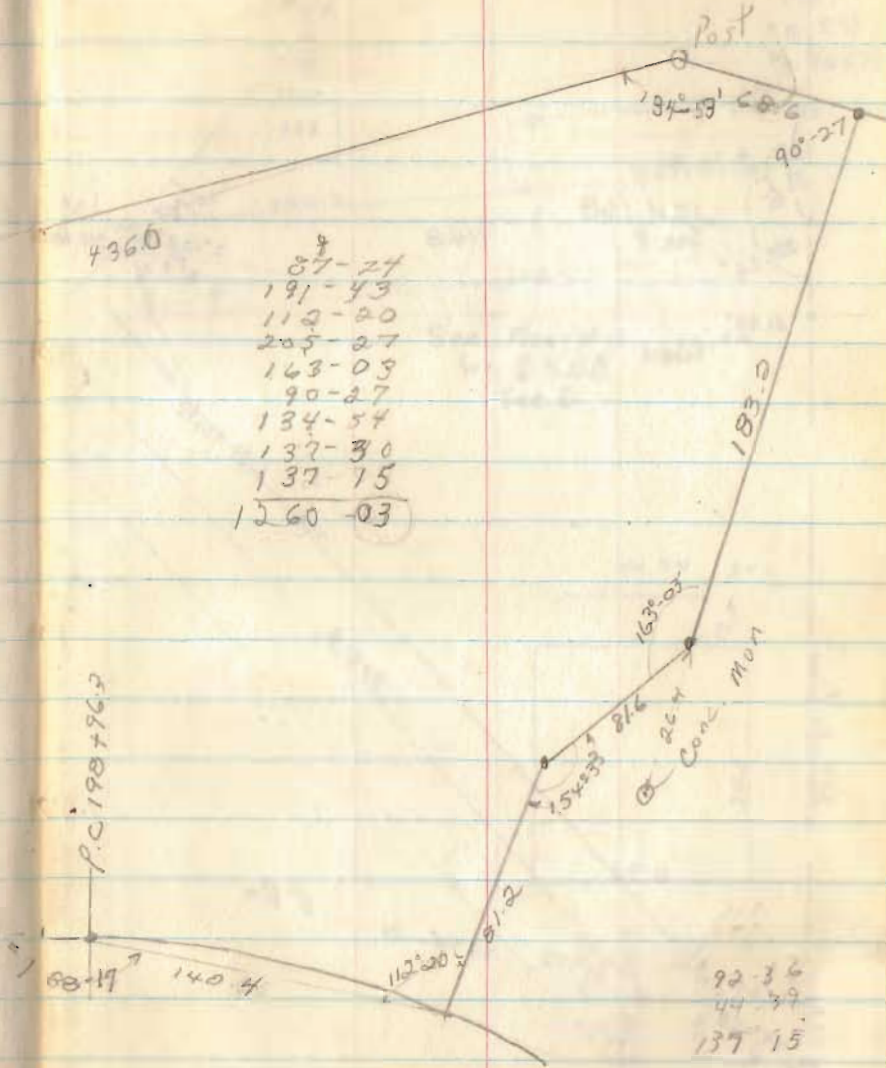 Post
134°-53'
68.6
90°-27
436.0
87-24
191-43
112-20
205-27
163-03
90-27
134-54
137-30
137 15
1260-03
183.0
163°-03
81.6
26.4
Conc. Mon
154°33'
P.C. 198+96.3
81.2
112°20'
140.4
92-36
44-39
137 15